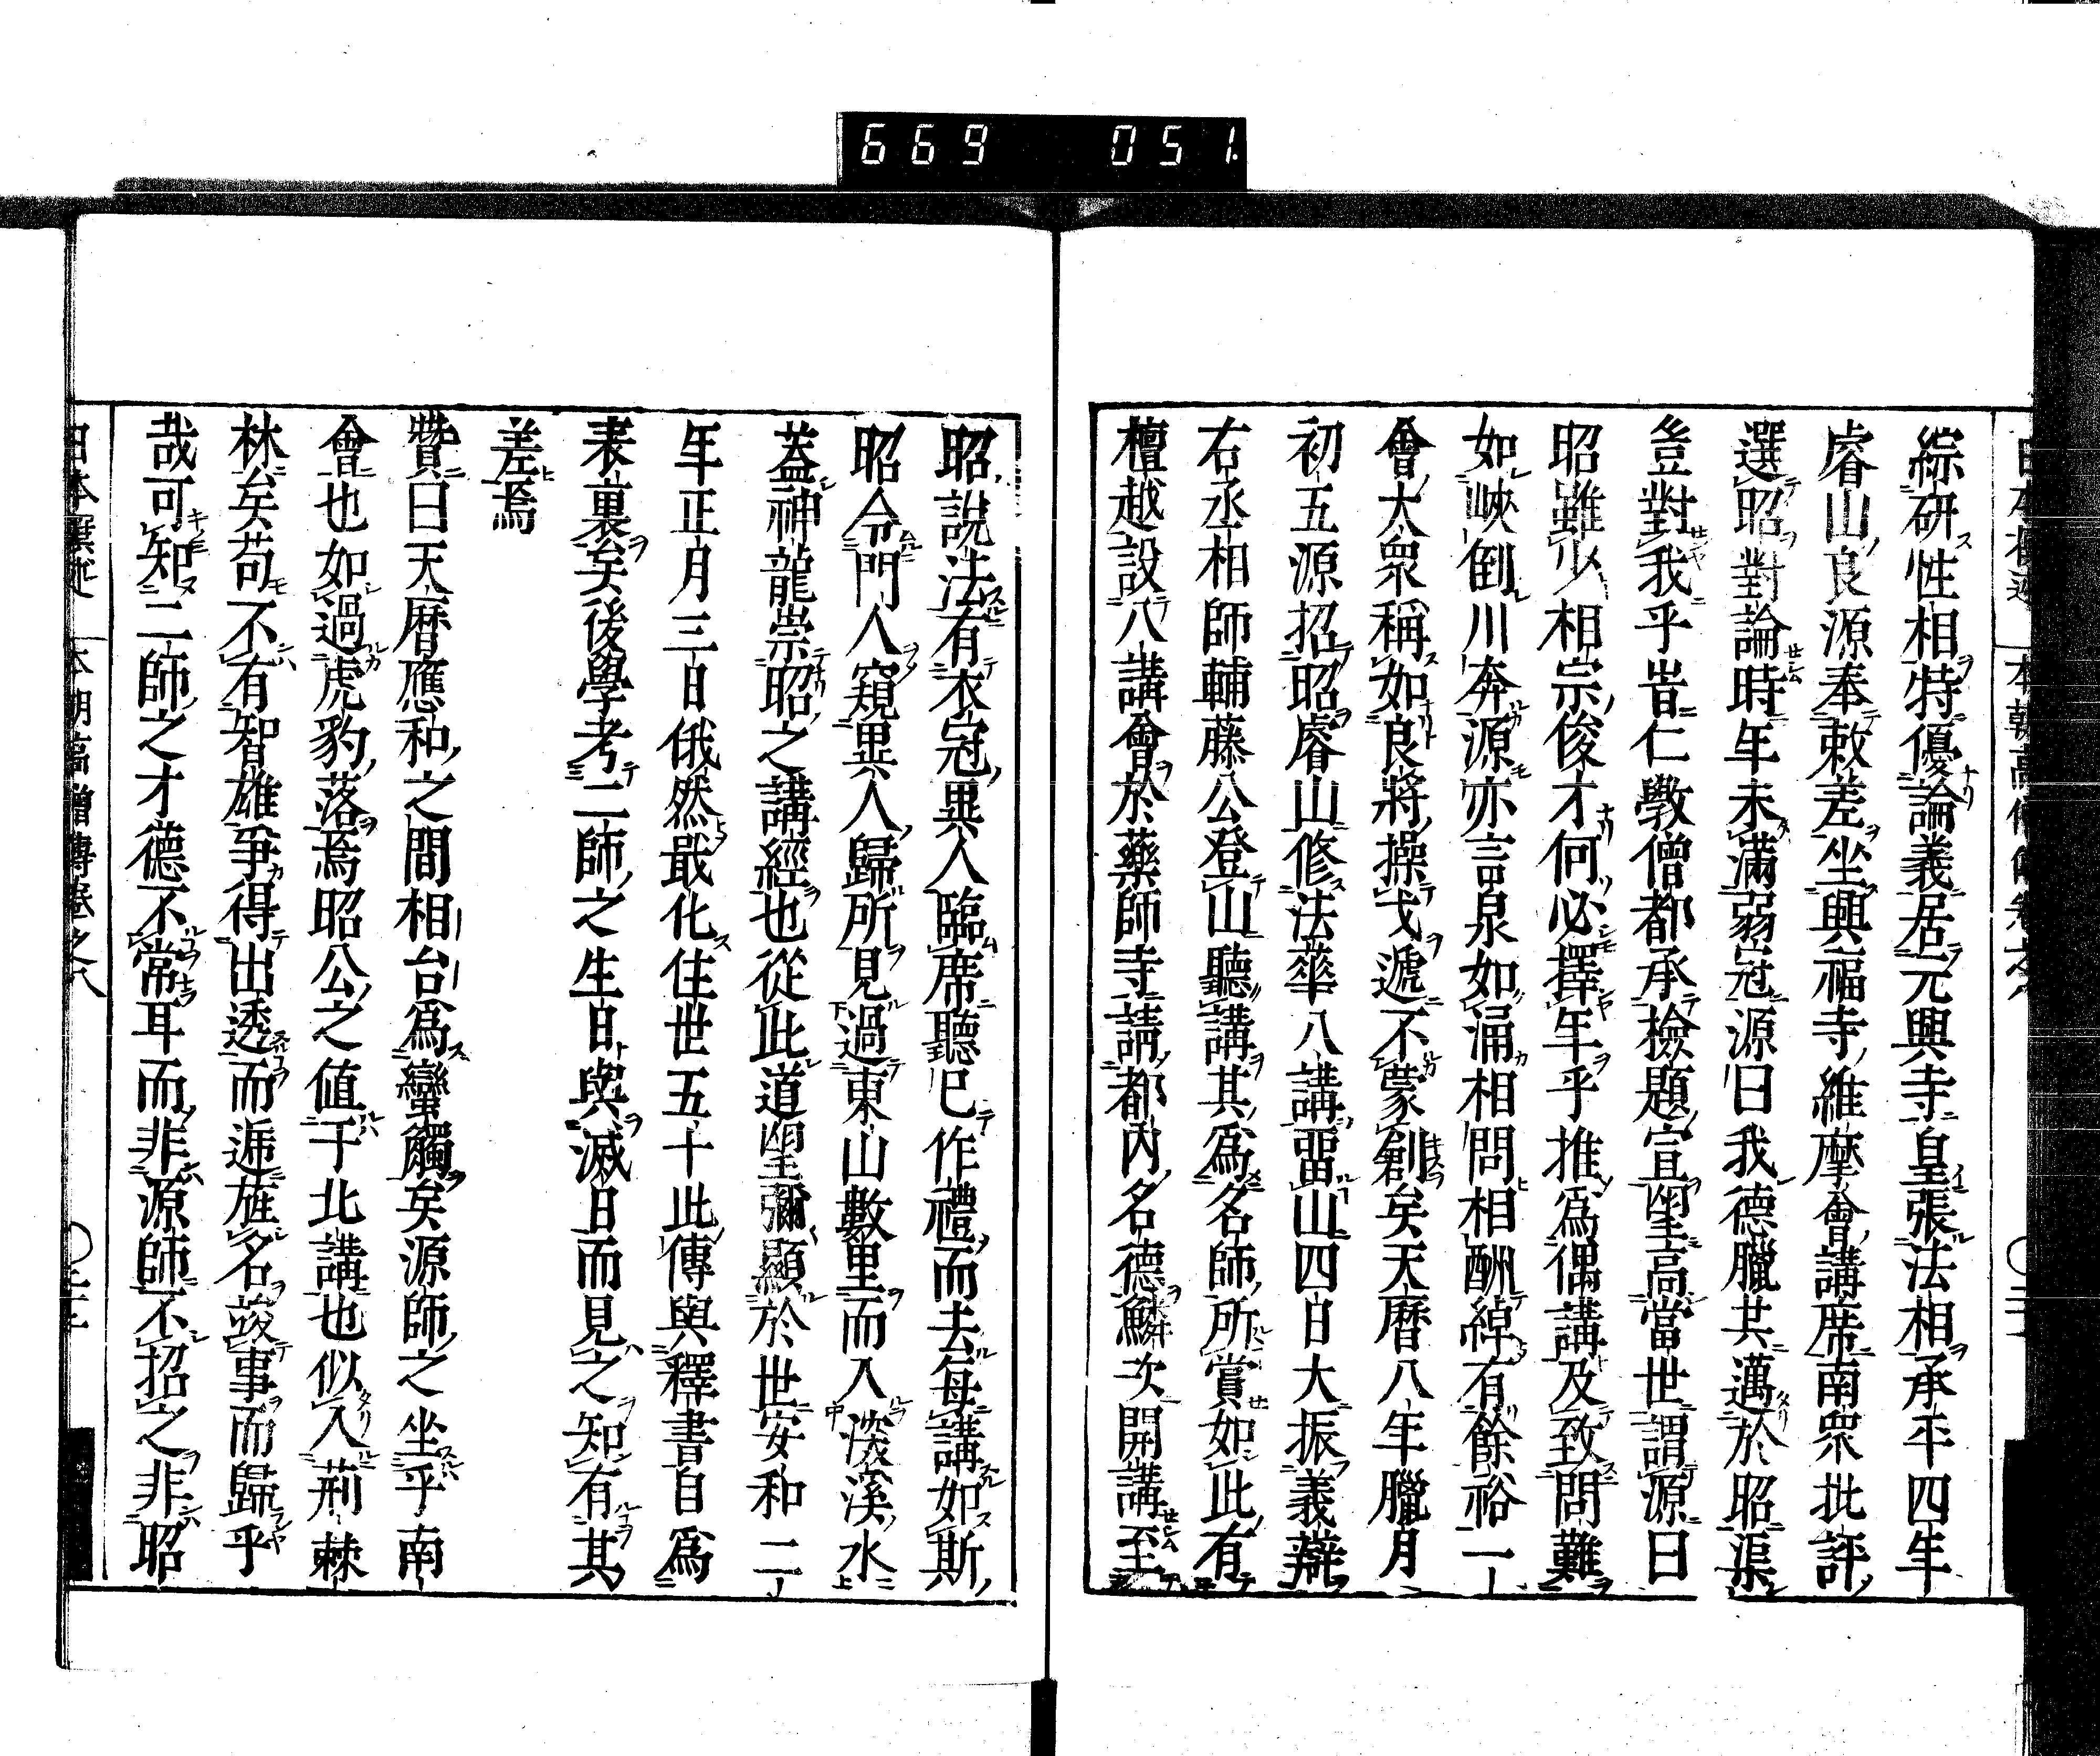 669 051.
綜研性相特優論義居元興寺皇張法相承平四年
睿山良源奉敕差坐興福寺維摩會講席南衆批評
選昭對論時年未滿弱冠源曰我德臘共邁於昭渠
豈對我乎昔仁斅僧都承檢題宣望高當世謂源曰
昭雖少相宗俊才何必擇年乎推爲偶講及致問難
如峽倒川奔源亦言泉如涌相問相酬綽有餘裕一
會大衆稱如良將操戈遞不蒙創矣天曆八年臘月
初五源招昭睿山修法華八講畱山四日大振義辯
右丞相師輔藤公登山聽講其爲名師所賞如此有
檀越設八講會於藥師寺請都內名德鱗次開講至
昭說法有衣冠異人臨席聽已作禮而去每講如斯
昭令門人窺異人歸所見過東山數里而入淡溪水
蓋神龍崇昭之講經也從此道望彌顯於世安和二
年正月三日俄然戢化住世五十此傳與釋書自爲
表裏矣後學考二師之生日與滅日而見之知有其
差焉
贊曰天曆應和之間相台爲蠻觸矣源師之坐乎南
會也如過虎豹落焉昭公之値于北講也似入荊棘
林矣苟不有智雄爭得出透而遞旌名竣事而歸乎
哉可知二師之才德不常耳而非源師不招之非昭
日本撰述 本朝高僧傳卷之八